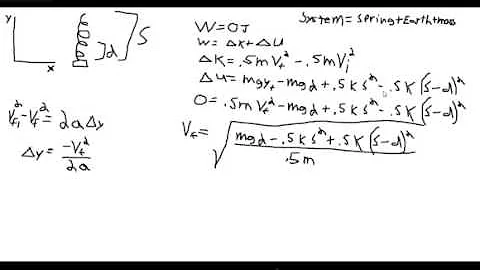 System = Spring+Earth+mass
y
x
d
S
W=0J
W = ΔK+ΔU
ΔK = .5mV_f² - .5mV_i²
ΔU = mgy_f - mgd + .5Ks² - .5K(s-d)²
0 = .5mV_f² - mgd + .5Ks² - .5K(s-d)²
V_f = √((mgd - .5Ks² + .5K(s-d)²)/.5m)
V_f,² - V_f² = 2aΔy
Δy = -V_f²/2a